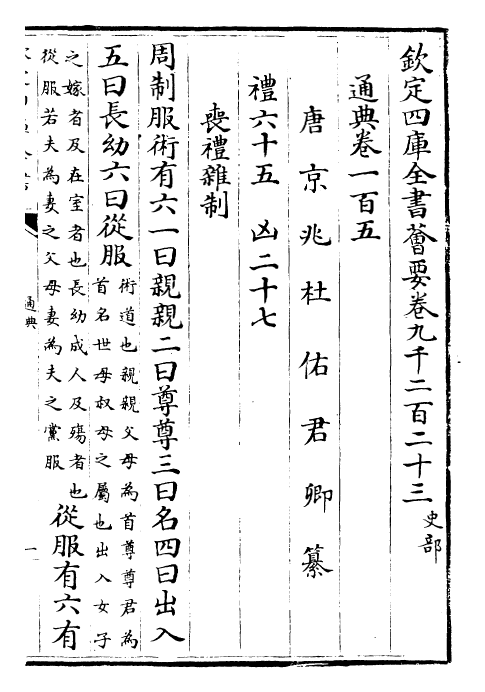 欽定四庫全書薈要卷九千二百二十三 史部
通典卷一百五
唐京兆杜佑君卿纂
禮六十五 凶二十七
喪禮雜制
周制服術有六一曰親親二曰尊尊三曰名四曰出入
五曰長幼六曰從服 術道也親親父母為首尊尊君為
首名世母叔母之屬也出入女子
之嫁者及在室者也長幼成人及殤者也
從服若夫為妻之父母妻為夫之黨服 從服有六有
通典
一